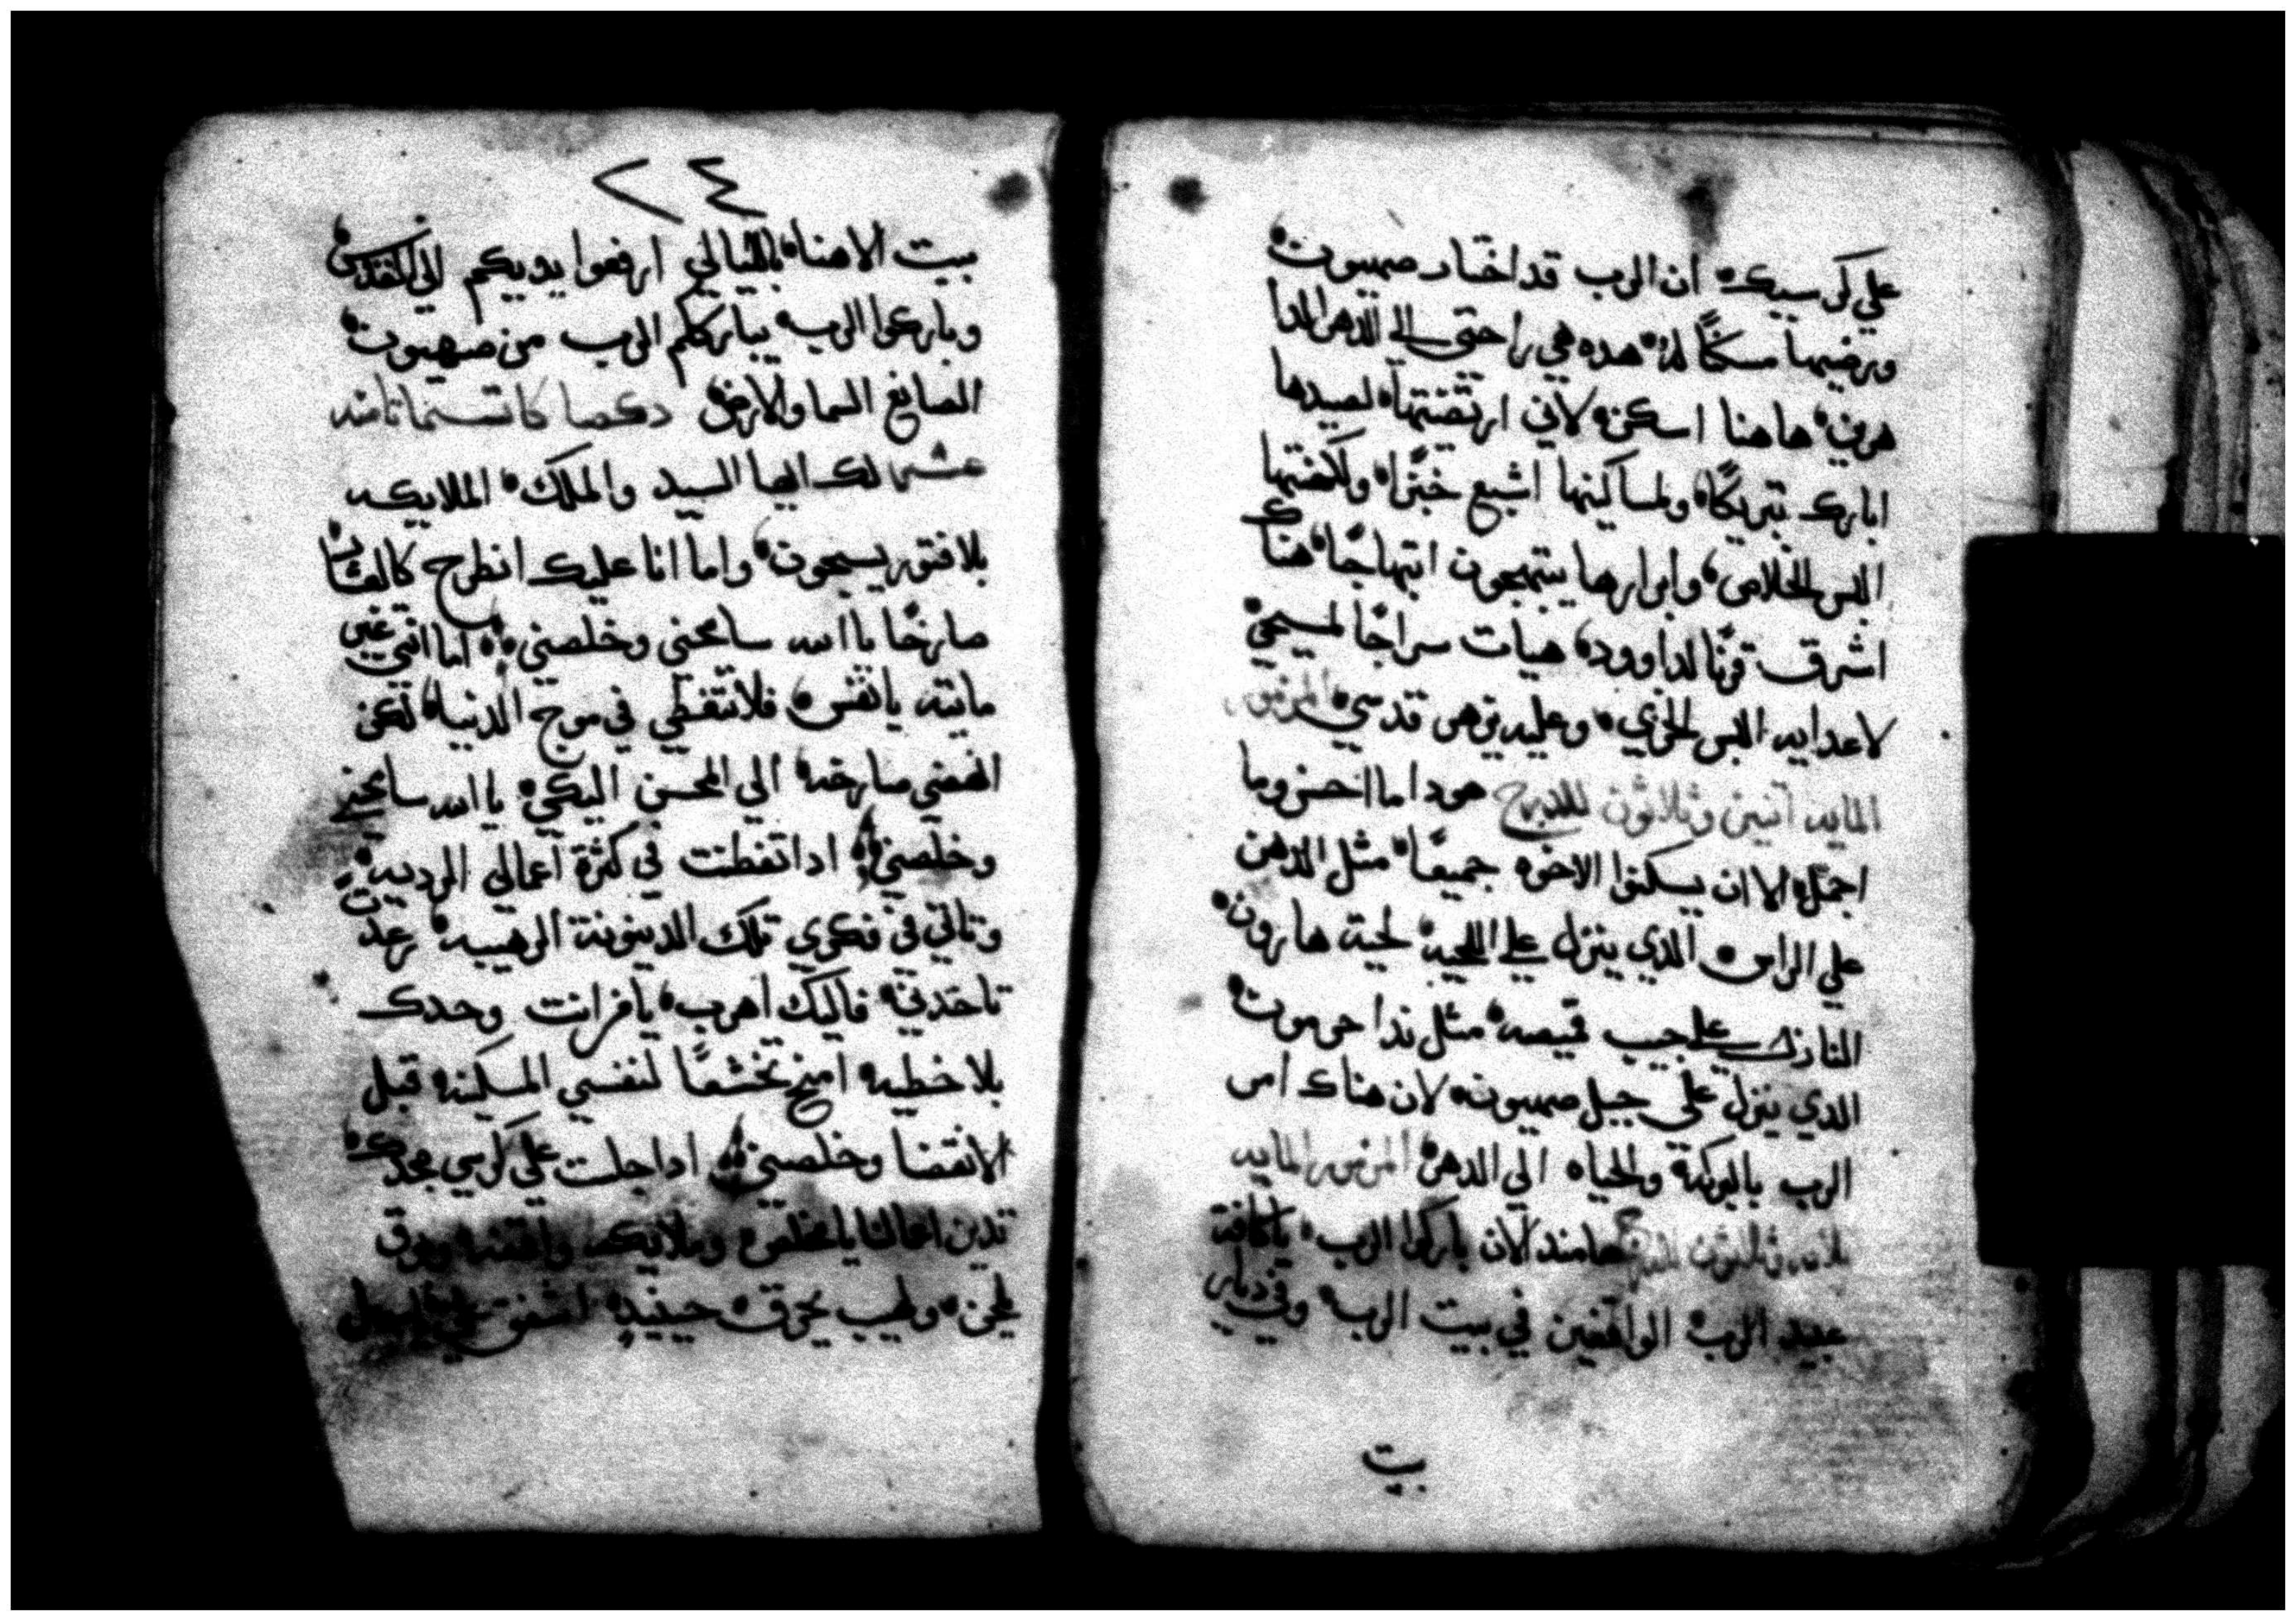 علي كرسيك ان الرب قد اختار صهيون
ورضيها مسكنًا له هده هي راحتي الي الدهر الدا
هرين هاهنا اسكن لاني ارتضيتها لصيدها
ابارك تبريكًا ولمساكينها اشبع خبزًا ولكهنتها
البس الخلاص وابرارها يبتهجون ابتهاجًا هناك
اشرق قرنًا لداوود هيات سراجًا لمسيحي
لاعدايه البس الخزي وعليه يزهر قدسي المزمور
المايه اتنين وثلاثون للدرج هودا ما احسن وما
اجمل الا ان يسكنوا الاخوه جميعًا مثل الدهن
علي الراس الدي ينزل علي اللحيه لحية هارون
النازل علي جيب قميصه مثل ندا حرمون
الدي ينزل علي جبل صهيون لان هناك امر
الرب بالبركة والحياه الي الدهر المزمور المايه
تلاته وثلاثون للدرج هامند الان باركوا الرب ياكافة
عبيد الرب الواقفين في بيت الرب وفي ديار
بيت
٢٤
بيت الاهنا بالليالي ارفعوا يديكم الي القدس
وباركوا الرب يبارككم الرب من صهيون
الصانع السما والارض دكصا كانتسما تامند
عشر لك ايها السيد والملك الملايكه
بلا فتور يسبحون واما انا عليك انطرح كالعشار
صارخًا ياالله سامحني وخلصني اما انتي غير
مايته يانفس فلا تتغطي في موج الدنيا لكن
انهضي صارخه الي المحسن اليكي ياالله سامحني
وخلصني ادا تفطنت في كثرة اعمالي الرديه
وتاتي في فكري تلك الدينونة الرهيبه رعدة
تاخدني فاليك اهرب يا من انت وحدك
بلا خطيه امنح تخشعًا لنفسي المسكينه قبل
الانقضا وخلصني ادا جلست علي كرسي مجدك
تدين اعمالنا يامخلص وملايكه واقفه وبوق
يلحن ولهيب يحرق حينيدٍ اشفق علي